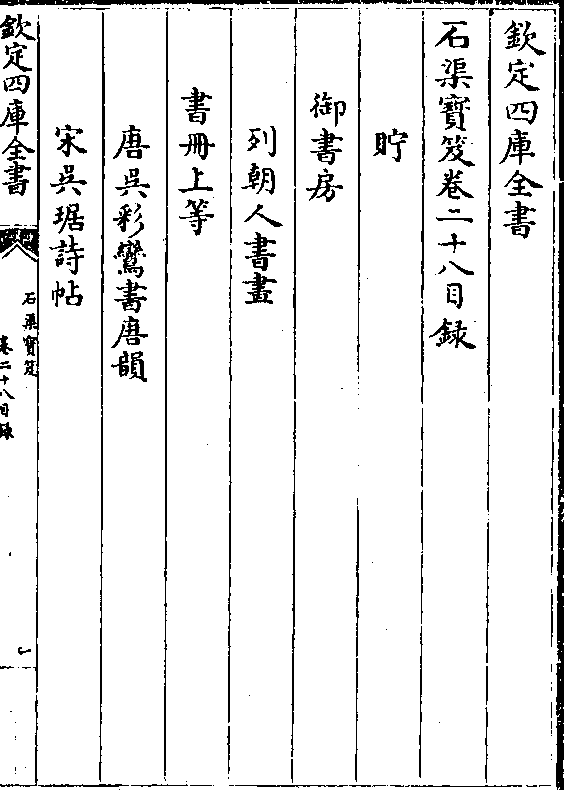 欽定四庫全書
石渠寶笈卷二十八目録
貯
御書房
列朝人書畫
書冊上等
唐吳彩鸞書唐韻
宋吳琚詩帖
欽定四庫全書
石渠寶笈
卷二十八目録
一